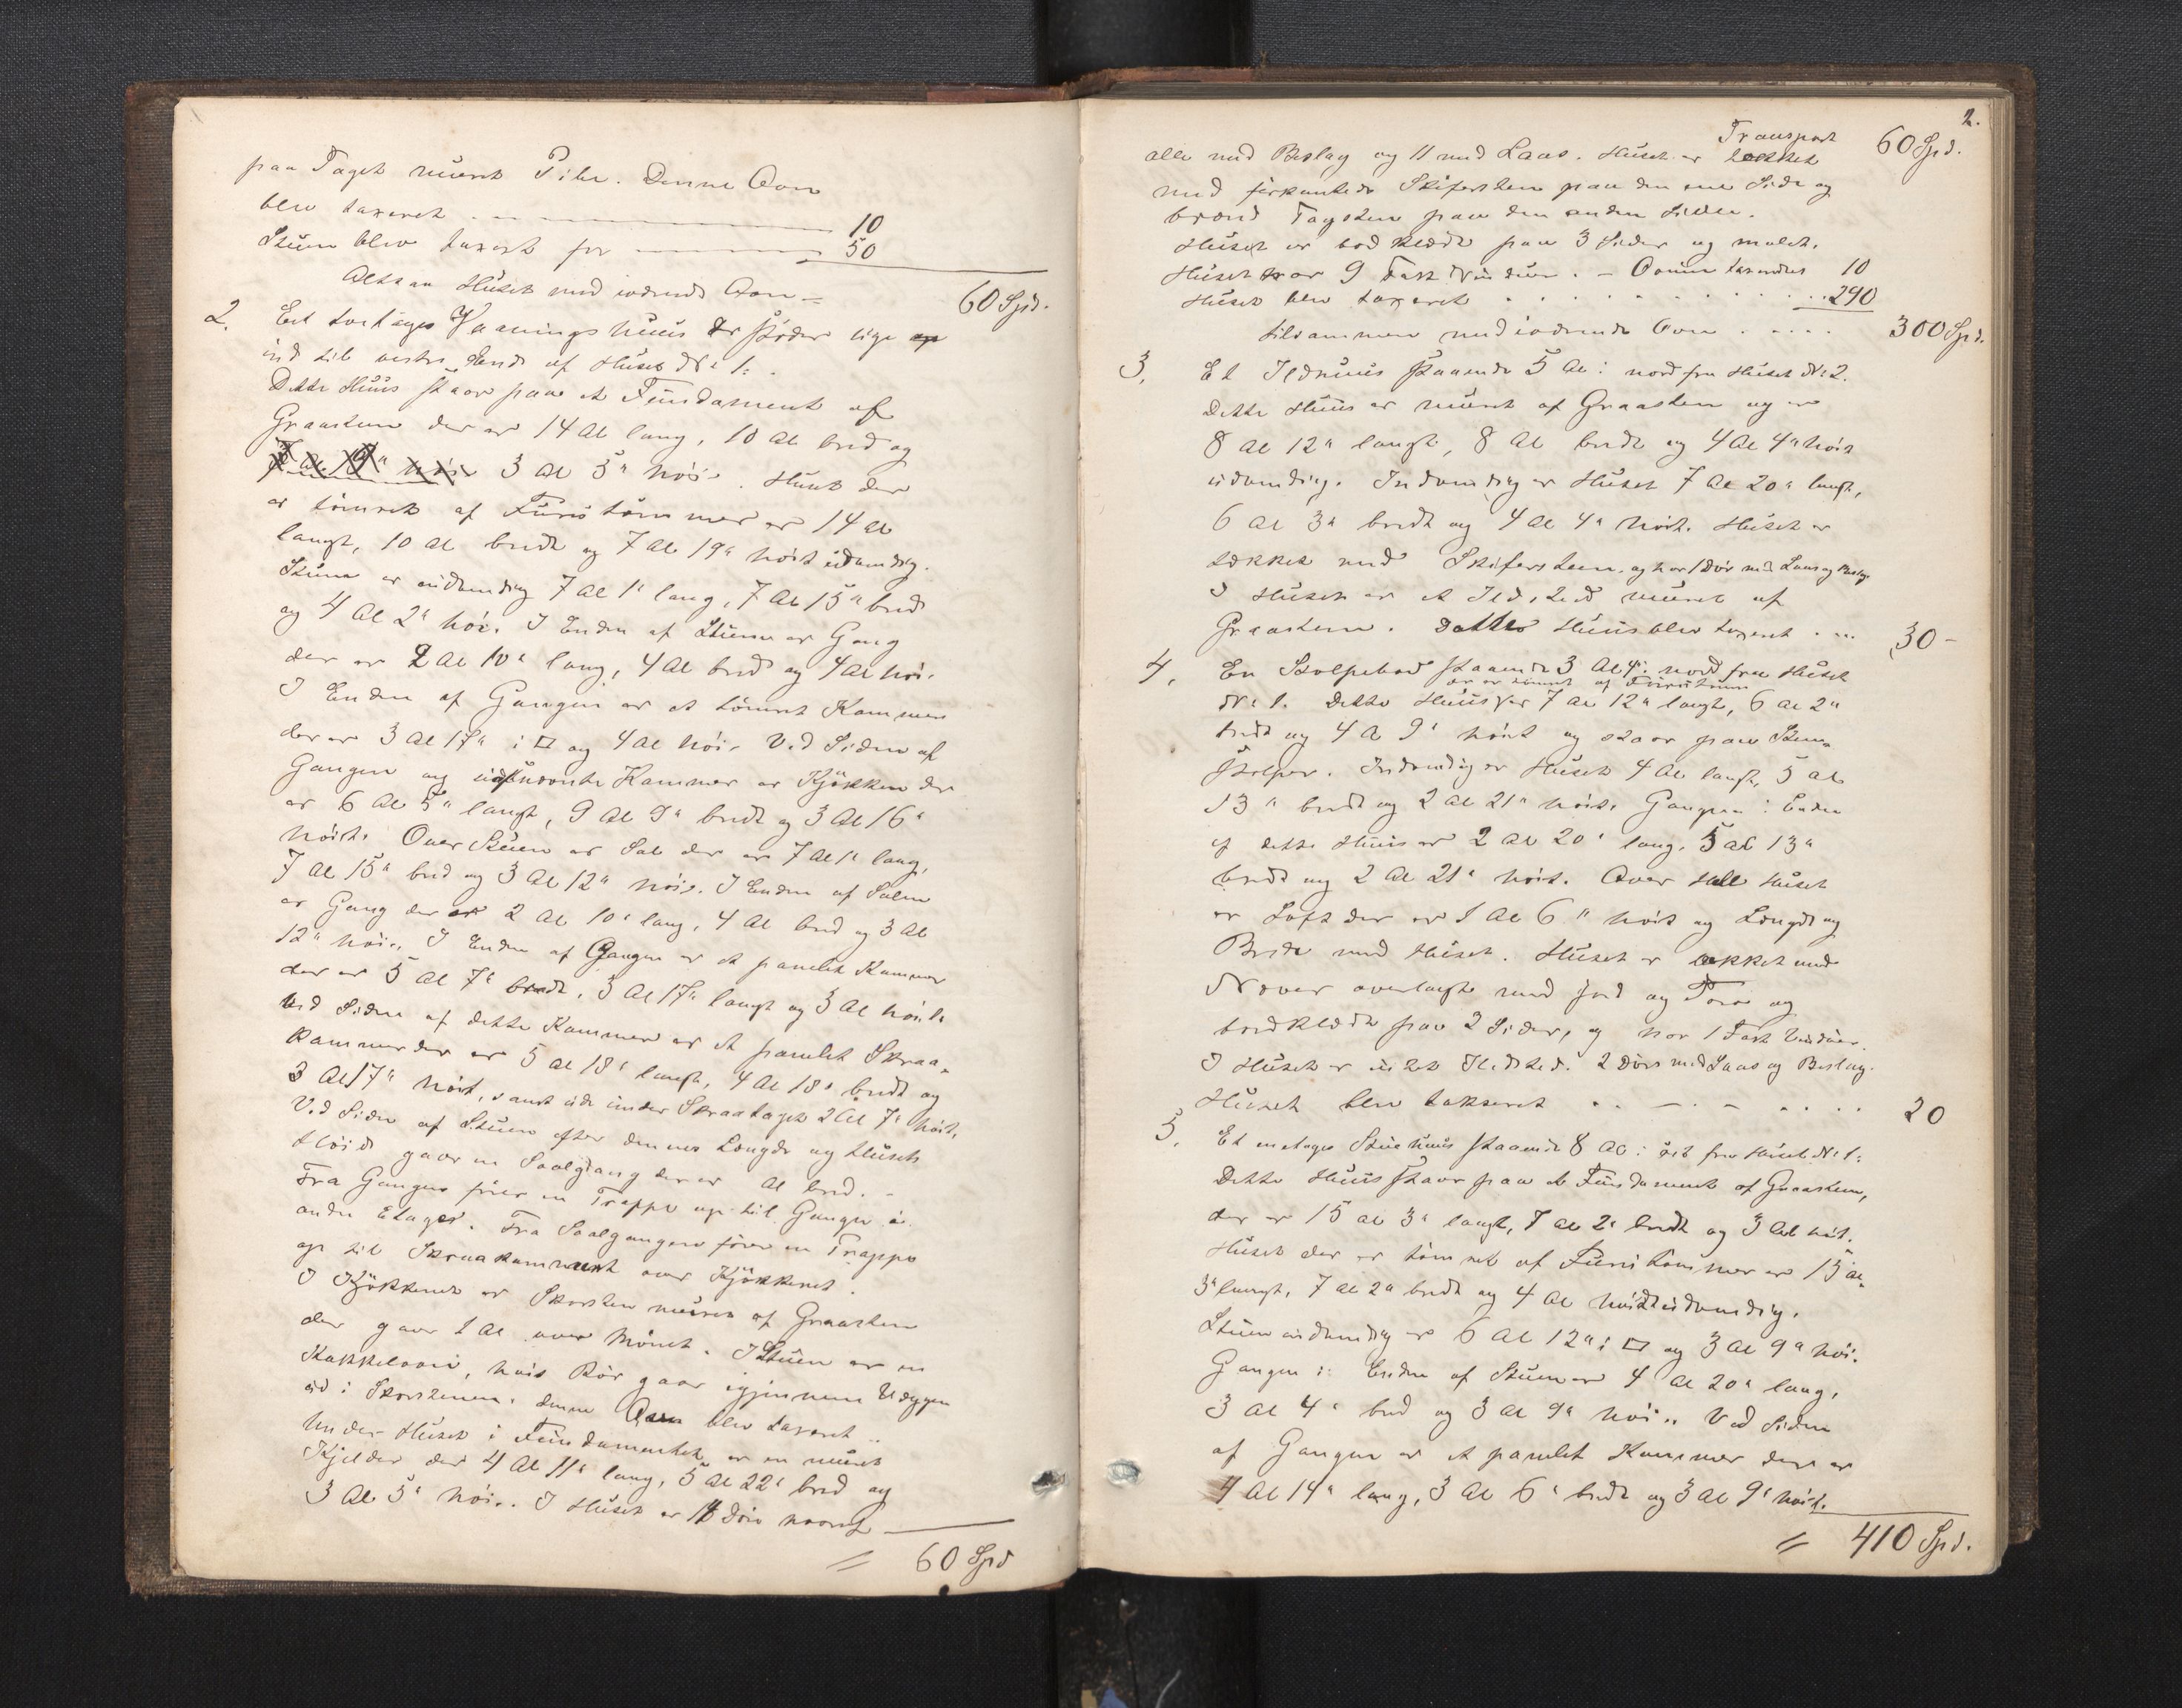 paa Taget muret Pibe. Denne Ovn
blev taxeret . . . 10
Stuen blev taxert for 50
Altsaa Huset med iværende Ovn = 60 Spd.
2. Eet toetages Vaaningshuus der støder lige op
ind til vestre Ende af Huset No 1.
Dette Huus staar paa et Fundament af
Graasteen der er 14 Al lang, 10 Al bred og
3 Al 5" høi. Huset der
er tømret af Furutømmer er 14 Al
langt, 10 Al bredt og 7 Al 19" høit udvendig.
Stuen er indvendig 7 Al 1" lang, 7 Al 15" bred
og 4 Al 2" høi. I Enden af Stuen er Gang
der er 2 Al 10" lang, 4 Al bred og 4 Al høi.
I Enden af Gangen er et tømret Kammer
der er 3 Al 17" i □ og 4 Al høi. Ved Siden af
Gangen og Kammer er Kjøkken der
er 6 Al 5" langt, 9 Al 9" bredt og 3 Al 16"
høit. Over Stuen er Sal der er 7 Al 1" lang,
7 Al 15" bred og 3 Al 12" høi. I Enden af Salen
er Gang der er 2 Al 10" lang, 4 Al bred og 3 Al
12" høi. I Enden af Gangen er et panelet Kammer
der er 5 Al 7" bredt, 3 Al 17" langt og 3 Al høit.
Ved Siden af dette Kammer er et panelet Skraa-
kammer der er 5 Al 18" langt, 4 Al 18" bredt og
3 Al 17" høit, samt ude under Skraataget 2 Al 7" høit.
Ved Siden af Stuen efter dennes Længde og Husets
Høide gaar en Svalgang der er Al bred. -
Fra Gangen fører en Trappe op til Gangen i
anden Etage. Fra Svalgangen fører en Trappe
op til Skraakammeret over Kjøkkenet.
I Kjøkkenet er Skorsten muret af Graasteen
der gaar 1 Al over Mønet. I Stuen er en
Kakkelovn, hvis Rør gaar igjennem Væggen
ud i Skorstenen. denne Ovn blev taxeret ..
Under Huset i Fundamentet er en muret
Kjelder der 4 Al 11" lang, 5 Al 22" bred og
3 Al 5" høi. I Huset er 14 Døre hvoraf
= 60 Spd
2.
Transport 60 Spd.
alle med Beslag og 11 med Laas. Huset er tækket
med firkantede Skifersteen paa den ene Side og
brænd Tagsteen paa den anden Siden.
Huset er bordklædt paa 3 Sider og malet.
Huset har 9 Fag Vinduer. - Ovnen taxeredes 10
Huset blev taxeret . . . 290
tilsammen med iværende Ovn . . . . 300 Spd.
3. Et Ildhuus staaende 5 Al: nord fra Huset No 2.
Dette Huus er muret af Graasten og er
8 Al 12" langt, 8 Al bredt og 4 Al 4" høit
udvendig. Indvendig er Huset 7 Al 20" langt,
6 Al 3" bredt og 4 Al 4" høit. Huset er
tækket med Skifersteen. og har 1 Dør med Laas og Beslag
I Huset er et Ildsted muret af
Graasteen. Dette Huus blev taxeret . . . 30 -
4. En Stolpebod staaende 3 Al 4": nord fra Huset
der er tømret af Furutømmer
No 1. Dette Huus er 7 Al 12" langt, 6 Al 2"
bredt og 4 Al 9" høit og staar paa Steen-
stolper. Indvendig er Huset 4 Al langt, 5 Al
13" bredt og 2 Al 21" høit. Gangen i Enden
af dette Huus er 2 Al 20" lang, 5 Al 13"
bredt og 2 Al 21" høit. Over Huset
er Loft der er 1 Al 6" høit og Længde og
Brede med Huset. Huset er tækket med
Næver overlagt med Jord og Torv og
bordklædt paa 2 Sider, og har 1 Fag Vinduer.
I Huset er intet Ildsted. 2 Døre med Laas og Beslag.
Huset blev taxeret . . - . - . . . . 20
5. Et enetages Stuehuus staaende 8 Al: øst fra Huset No 1:
Dette Huus staar paa et Fundament af Graasteen,
der er 15 Al 3" langt, 7 Al 2" bredt og 3 Al høit.
Huset der er tømret af Furutømmer er 15 Al
3" langt, 7 Al 2" bredt og 4 Al høidt udvendig.
Stuen indvendig er 6 Al 12" i □ og 3 Al 9" høi.
Gangen i Enden af Stuen er 4 Al 20" lang,
3 Al 4" bred og 3 Al 9" høi. Ved Siden
af Gangen er et panelet Kammer der er
4 Al 14" lang, 3 Al 6" bredt og 3 Al 9" høit.
= 410 Spd.